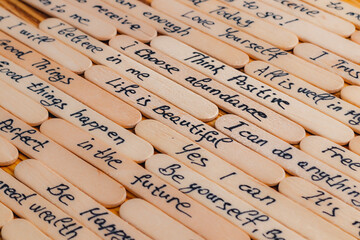 receive
to go!
enough
Today
Love Yourself
I will
I believe
in me
I choose
Think Positive
All is well in my
Good Things
abundance
good things happen
Life is Beautiful
I can do anything
I am
Perfect
in the future
Yes I can
Free
Be yourself, Be
It's
great wealth
Be Happy